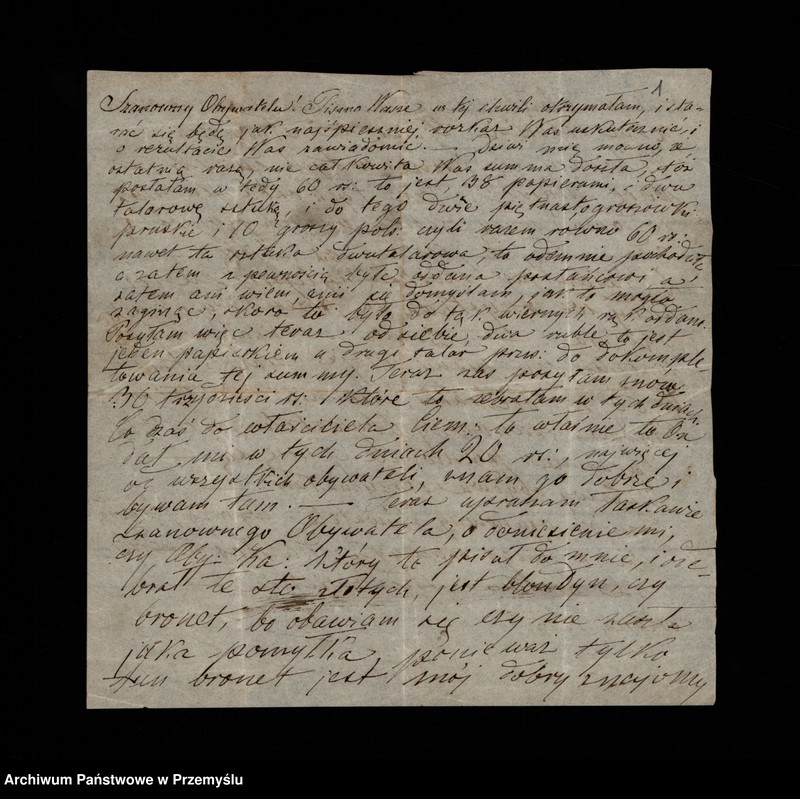 1
Szanowny Obywatelu! Pismo Wasze w tej chwili otrzymałam, i sta-
rać się będę jak najśpieszniej rozkaz Was uskutecznić, i
o rezultacie Was zawiadomić. — Dziwi mię mowno, że
ostatnią razą, nie całkowita Was summa doszła, otóż
posłałam w tedy 60 rs: to jest, 58 papierami, i dwu
talarową sztukę, i do tego dwie piętnastogroszówki
pruskie i 10 groszy pols: czyli razem równo 60 rs:
nawet ta sztuka dwutalarowa, to odemnie pochodziła,
a zatem z pewnością była oddana posłańcowi a
zatem ani wiem, ani się domyślam, jak to mogło
zaginąć, skoro to było do tak wiernych rąk oddane.
Posyłam więc teraz od siebie, dwa ruble, to jest
jeden papierkiem a drugi talar prus: do dokomple-
towania tej summy. Teraz zaś posyłam znów
30 trzydzieści rs: które to zebrałam w tych dniach.
Co zaś do właściciela Ciem: to właśnie to On
dał mi w tych dniach 20 rs:, najwięcej
od wszystkich obywateli, znam go dobrze i
bywam tam. — Teraz upraszam łaskawie
szanownego Obywatela, o doniesienie mi,
czy Oby: Ka: który to pisał do mnie, i ode-
brał te sto złotych, jest blondyn, czy
bronet, bo obawiam się czy nie zaszła
jaka pomyłka, ponieważ tylko
ten bronet jest mój dobry znajomy
Archiwum Państwowe w Przemyślu